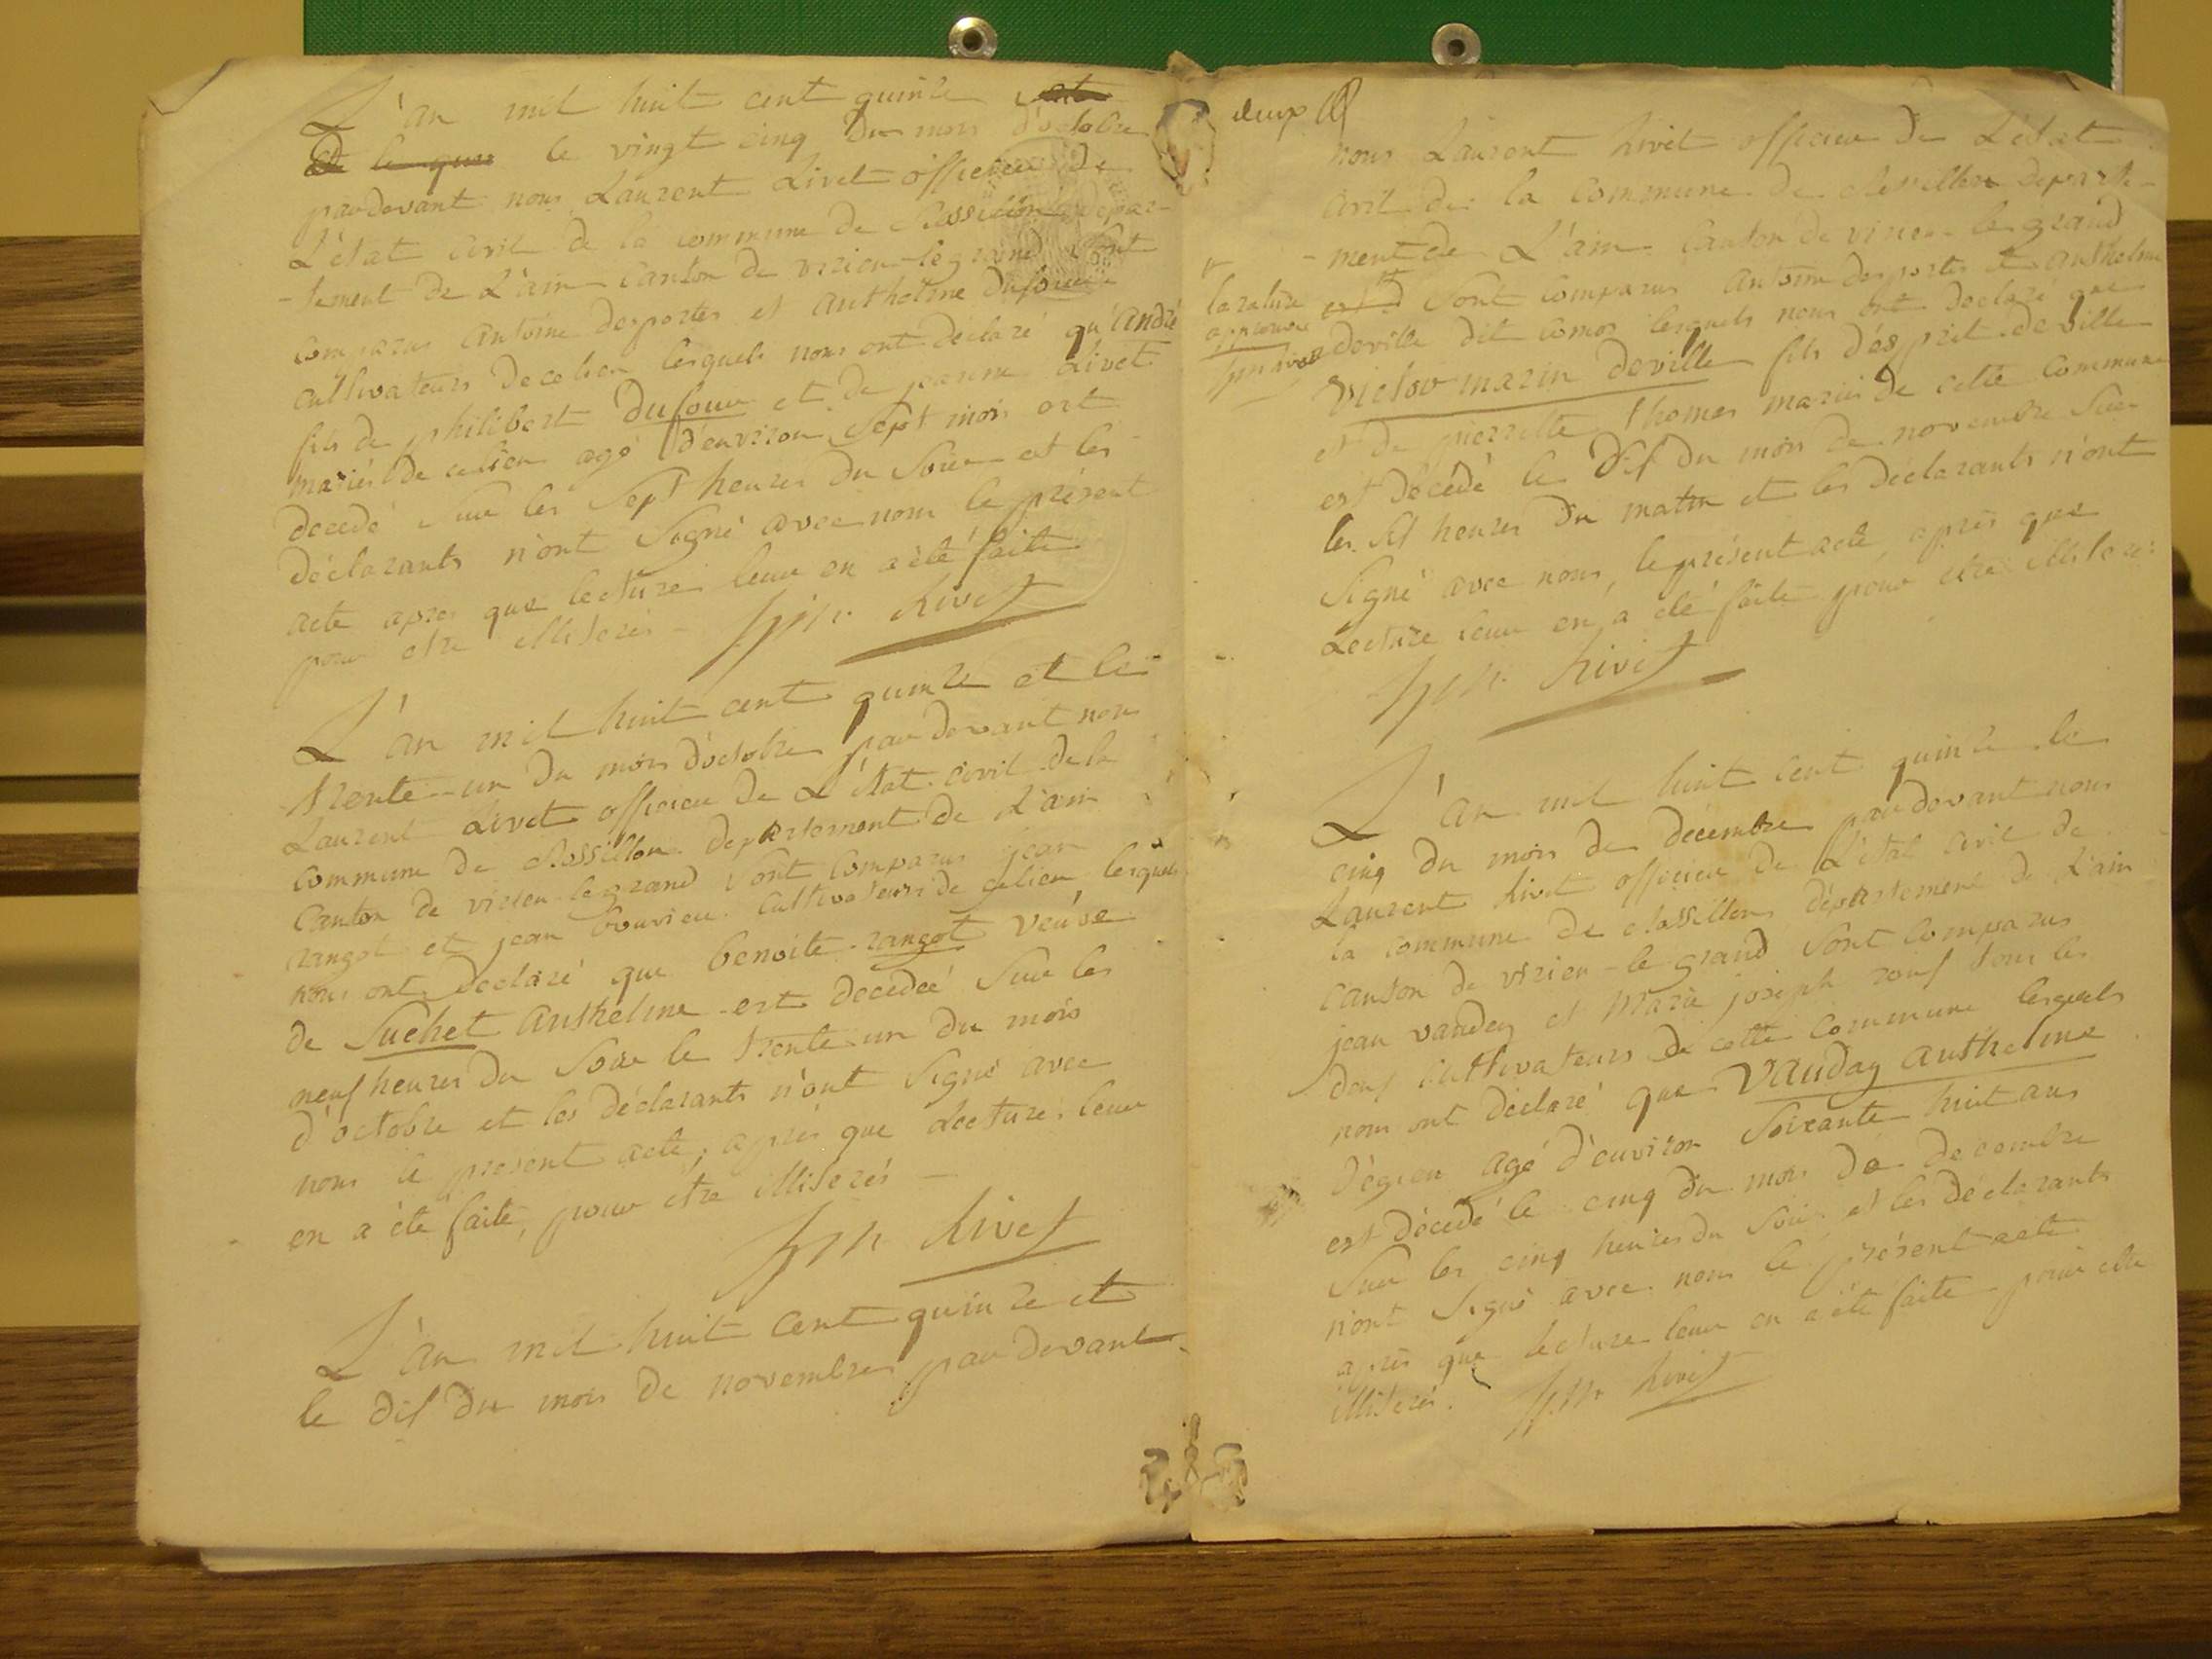 L'an mil huit cent quinze
le vingt cinq Du mois d'octobre
pardevant nous Laurent Livet officier de
L'état civil de la commune de Rossillon Depar-
-tement de L'ain canton de virieu-le-grand sont
comparus antoine desportes et anthelme Dufour
cultivateurs de ce lieu lesquels nous ont déclaré qu'André
fils de philibert Dufour et de jeanne Livet
mariés De ce lieu agé D'environ Sept mois est
décedé Sur les Sept heures Du Soir et les
déclarants n'ont Signé avec nous le présent
acte apres que lecture leur en a été faite
pour etre illiterés Livet
L'an mil huit cent quinze et le
trente-un Du mois d'octobre par devant nous
Laurent Livet officier De L'état civil de la
commune De Rossillon Departement De L'ain
Canton de virieu-le-grand Sont Comparus jean
rangot et jean bouvier Cultivateurs de ce lieu lesquels
nous ont Declaré que benoite rangot veuve
de Suchet Anthelme est decedeé Sur les
neuf heures Du Soir le trente-un du mois
d'octobre et les déclarants n'ont Signé avec
nous le présent acte, après que Lecture leur
en a été faite, pour être illiterés
Livet
L'an mil huit cent quinze et
le dix Du mois De novembre par devant
deux
nous Laurent Livet officier De L'état
civil de la commune de Rossillon departe-
-ment de L'ain Canton de virieu-le grand
la rature
Sont Comparus Antoine desportes et anthelme
approuvée
deville dit lesquels nous ont declaré que
Livet
victor marin deville fils d'ésprit deville
et De pierrette thomas mariés De cette Commune
est Décédé le Dix Du mois De novembre Sur
les Six heures Du matin et les Déclarants n'ont
Signé avec nous, le présent acte, après que
Lecture leur en a été faite pour être illiterés
Livet
L'an mil huit cent quinze le
cinq Du mois De décembre par devant nous
Laurent Livet officier De L'état civil de
la commune De Rossillon département De L'ain
Canton de virieu-le grand Sont Comparus
jean vauday et Marie joseph tous les
deux cultivateurs De cette Commune lesquels
nous ont Déclaré que Vauday anthelme
D'égieu Agé D'environ Soixante huit ans
est Décédé le cinq Du mois De decembre
Sur les cinq heures Du Soir et les Déclarants
n'ont Signé avec nous le présent acte
après que lecture leur en a été faite pour etre
illiterés. Livet